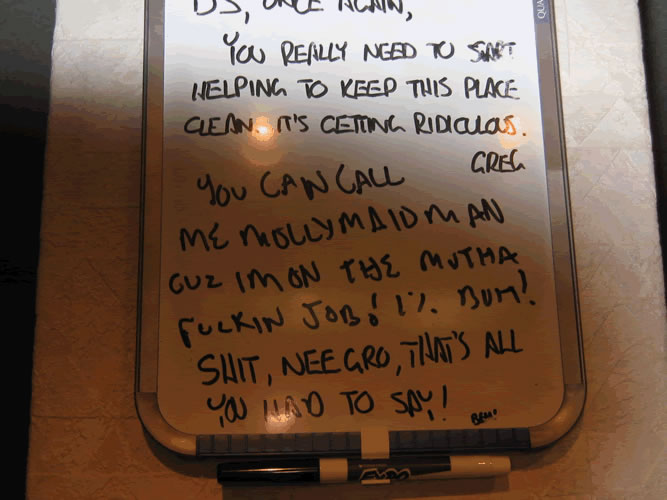 DJ, ONCE AGAIN,
YOU REALLY NEED TO START
HELPING TO KEEP THIS PLACE
CLEAN. IT'S GETTING RIDICULOUS.
GREG
YOU CAN CALL
ME MOLLYMAID MAN
CUZ IM ON THE MUTHA
FUCKIN JOB! 1%. BUM!
SHIT, NEEGRO, THAT'S ALL
YOU HAD TO SAY!
EXPO
QUA